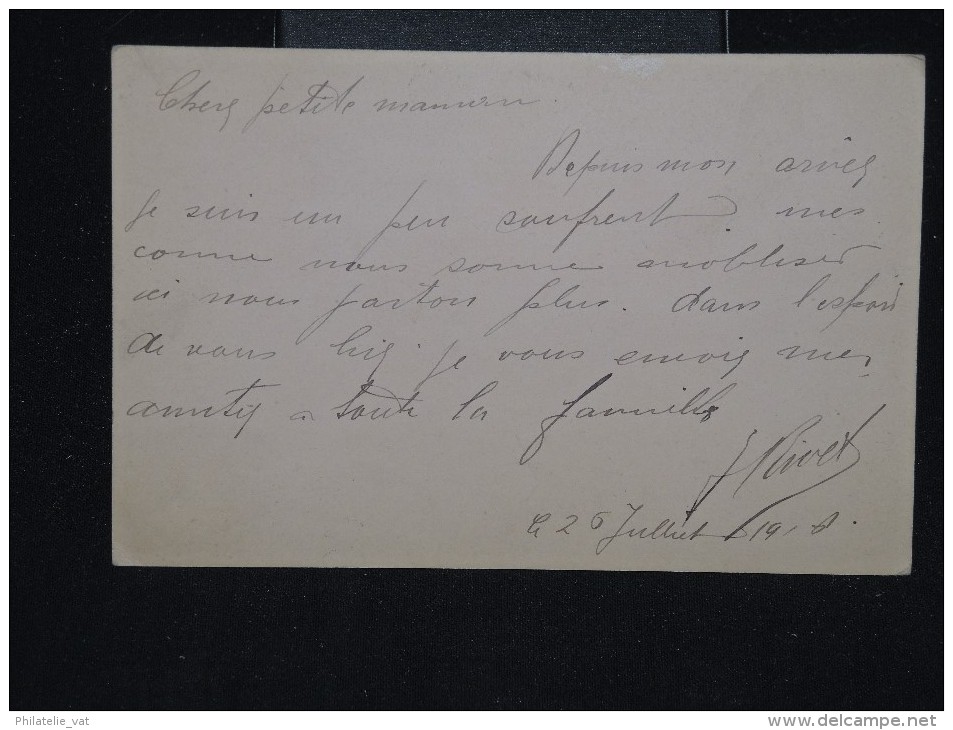 Cherg petite maman.
Depuis mon arivég
je suis un peu soufrent mes
comme nous somme mobliser
ici nous parton plus. dans l'espoir
de vous lirg. je vous envoig mes
amitig a toute la famille
J Rivet
le 26 Julliet 191
Philatelie_vat
delcampe.net